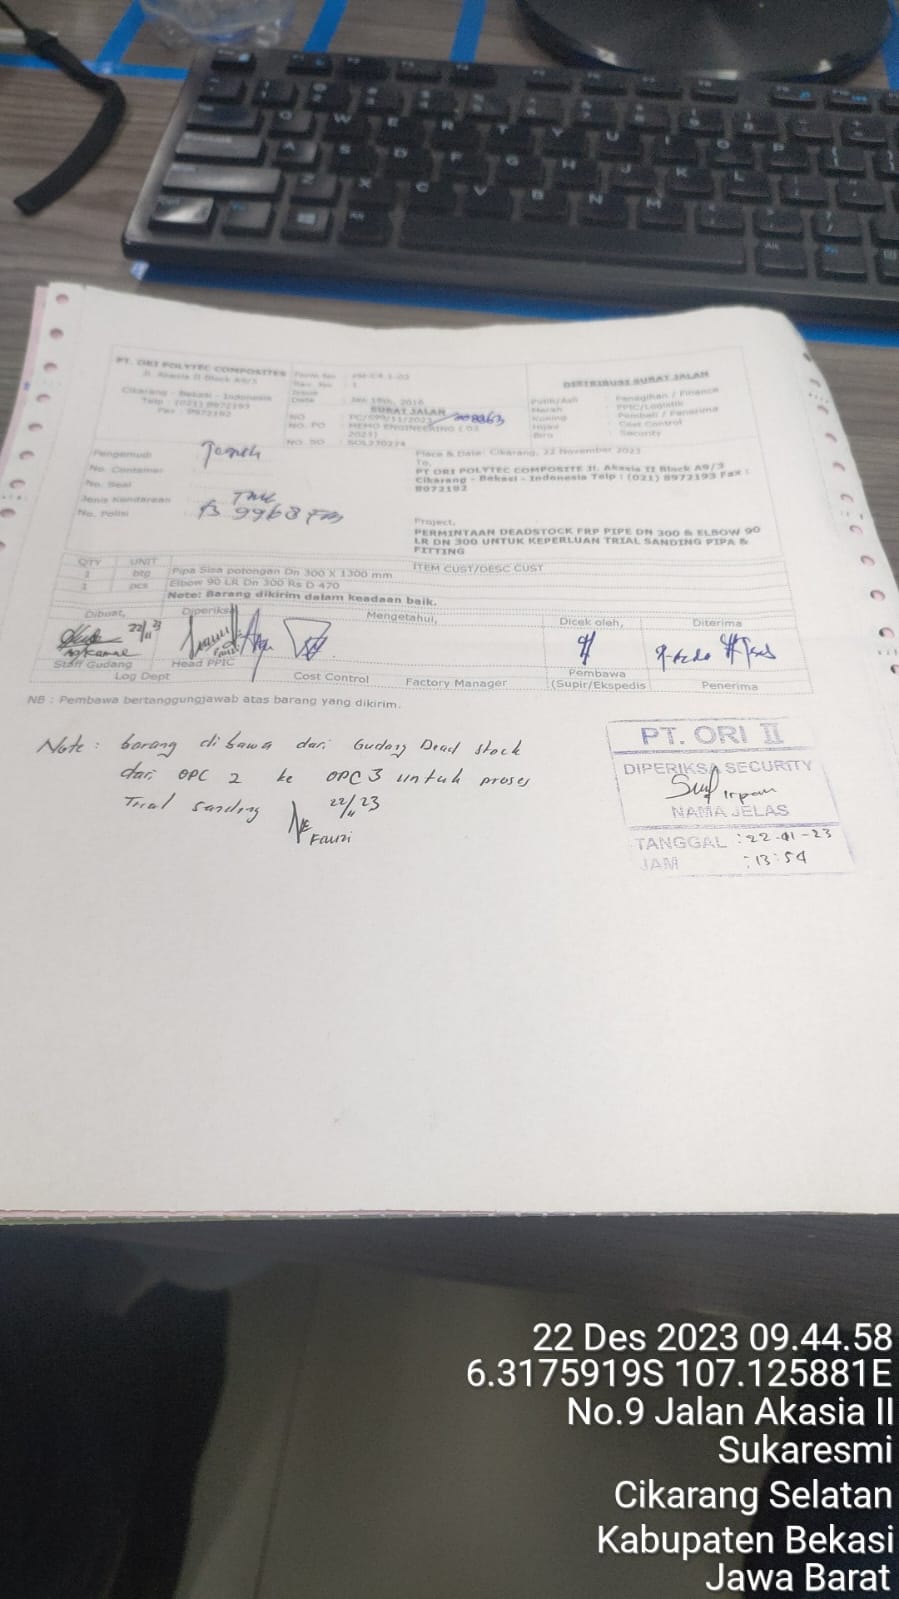 PT. ORI POLYTEC COMPOSITES
Jl. Akasia II Block A9/3
Cikarang - Bekasi - Indonesia
Telp : (021) 8972193
Fax : 8972192
Jan 18th, 2016
SURAT JALAN
NO
NO. PO : MEMO ENGINEERING ( 03
2023)
NO. SO
DISTRIBUSI SURAT JALAN
Putih/Asli : Penagihan / Finance
Merah : PPIC/Logistik
Kuning : Pembeli / Penerima
Hijau : Cost Control
Biru : Security
Pengemudi
No. Container
No. Seal
Jenis Kendaraan
No. Polisi : B 9968 FM
Place & Date: Cikarang, 22 November 2023
To,
PT ORI POLYTEC COMPOSITE Jl. Akasia II Block A9/3
Cikarang - Bekasi - Indonesia Telp : (021) 8972193 Fax :
8972192
Project,
PERMINTAAN DEADSTOCK FRP PIPE DN 300 & ELBOW 90
LR DN 300 UNTUK KEPERLUAN TRIAL SANDING PIPA &
FITTING
QTY UNIT ITEM CUST/DESC CUST
btg Pipa Sisa potongan Dn 300 X 1300 mm
pcs Elbow 90 LR Dn 300 Rs D 470
Note: Barang dikirim dalam keadaan baik.
Dibuat, Diperiksa Mengetahui, Dicek oleh, Diterima
22/11 23
Staff Gudang Head PPIC Cost Control Factory Manager Pembawa Penerima
Log Dept (Supir/Ekspedis
NB : Pembawa bertanggungjawab atas barang yang dikirim.
Note : barang di bawa dari Gudang Dead stock
dari OPC 2 ke OPC 3 untuk proses
Trial sanding 22/11 23
Fauzi
PT. ORI II
DIPERIKSA SECURITY
Irpan
NAMA JELAS
TANGGAL : 22-11-23
JAM : 13:54
22 Des 2023 09.44.58
6.3175919S 107.125881E
No.9 Jalan Akasia II
Sukaresmi
Cikarang Selatan
Kabupaten Bekasi
Jawa Barat